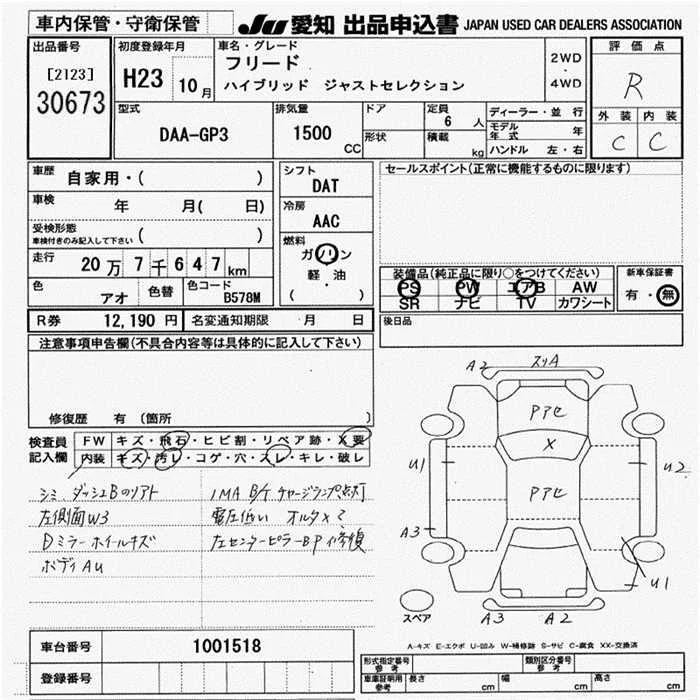 車内保管・守衛保管
JU 愛知 出品申込書 JAPAN USED CAR DEALERS ASSOCIATION
出品番号 初度登録年月 車名・グレード 評価点
[2123] H23 10月 フリード 2WD・4WD R
30673 ハイブリッド ジャストセレクション
型式 排気量 ドア 定員 ディーラー・並行 外装 内装
DAA-GP3 1500 CC 形状 6人 積載 kg モデル年式 年 C C
ハンドル 左・右
車歴 自家用・( ) シフト DAT セールスポイント(正常に機能するものに限ります)
車検 年 月( 日) 冷房 AAC
受検形態
車検付きのみ記入して下さい ( )
燃料 ガソリン
軽・油
( )
走行 20万7千647km
色 アオ 色替 色コード B578M
装備品(純正品に限り○をつけてください) 新車保証書
PS PW エアB AW 有・無
SR ナビ TV カワシート
R券 12,190円 名変通知期限 月 日 後日品
注意事項申告欄(不具合内容等は具体的に記入して下さい)
修復歴 有(箇所 )
検査員記入欄 FW キズ・飛石・ヒビ割・リペア跡・X要
内装 キズ・汚レ・コゲ・穴・スレ・キレ・破レ
シミ、ダッシュBのソフト IMA B/T チャージランプ点灯
左側面W3 電圧低い オルタ×?
Dミラーホイールキズ 左センターピラーBP修復
ボディAU
A2 スリA
Pアセ
X
PアセU1 U2
A3
U1
スペア A3 A2
A-キズ E-エクボ U-凹み W-補修跡 S-サビ C-腐食 XX-交換済
車台番号 1001518
登録番号
形式指定番号 参考 類別区分番号 参考
車庫証明用 参考 長さ cm 幅 cm 高さ cm